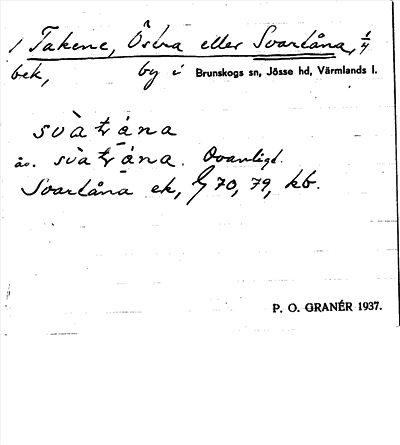 1 Takene, Östra eller Svartåna, 1/4
bek, by i Brunskogs sn, Jösse hd, Värmlands l.
svàtrána
äv. svàtrána. Ovanligt.
Svartåna ek, G 70, 79, kb.
P. O. GRANÉR 1937.